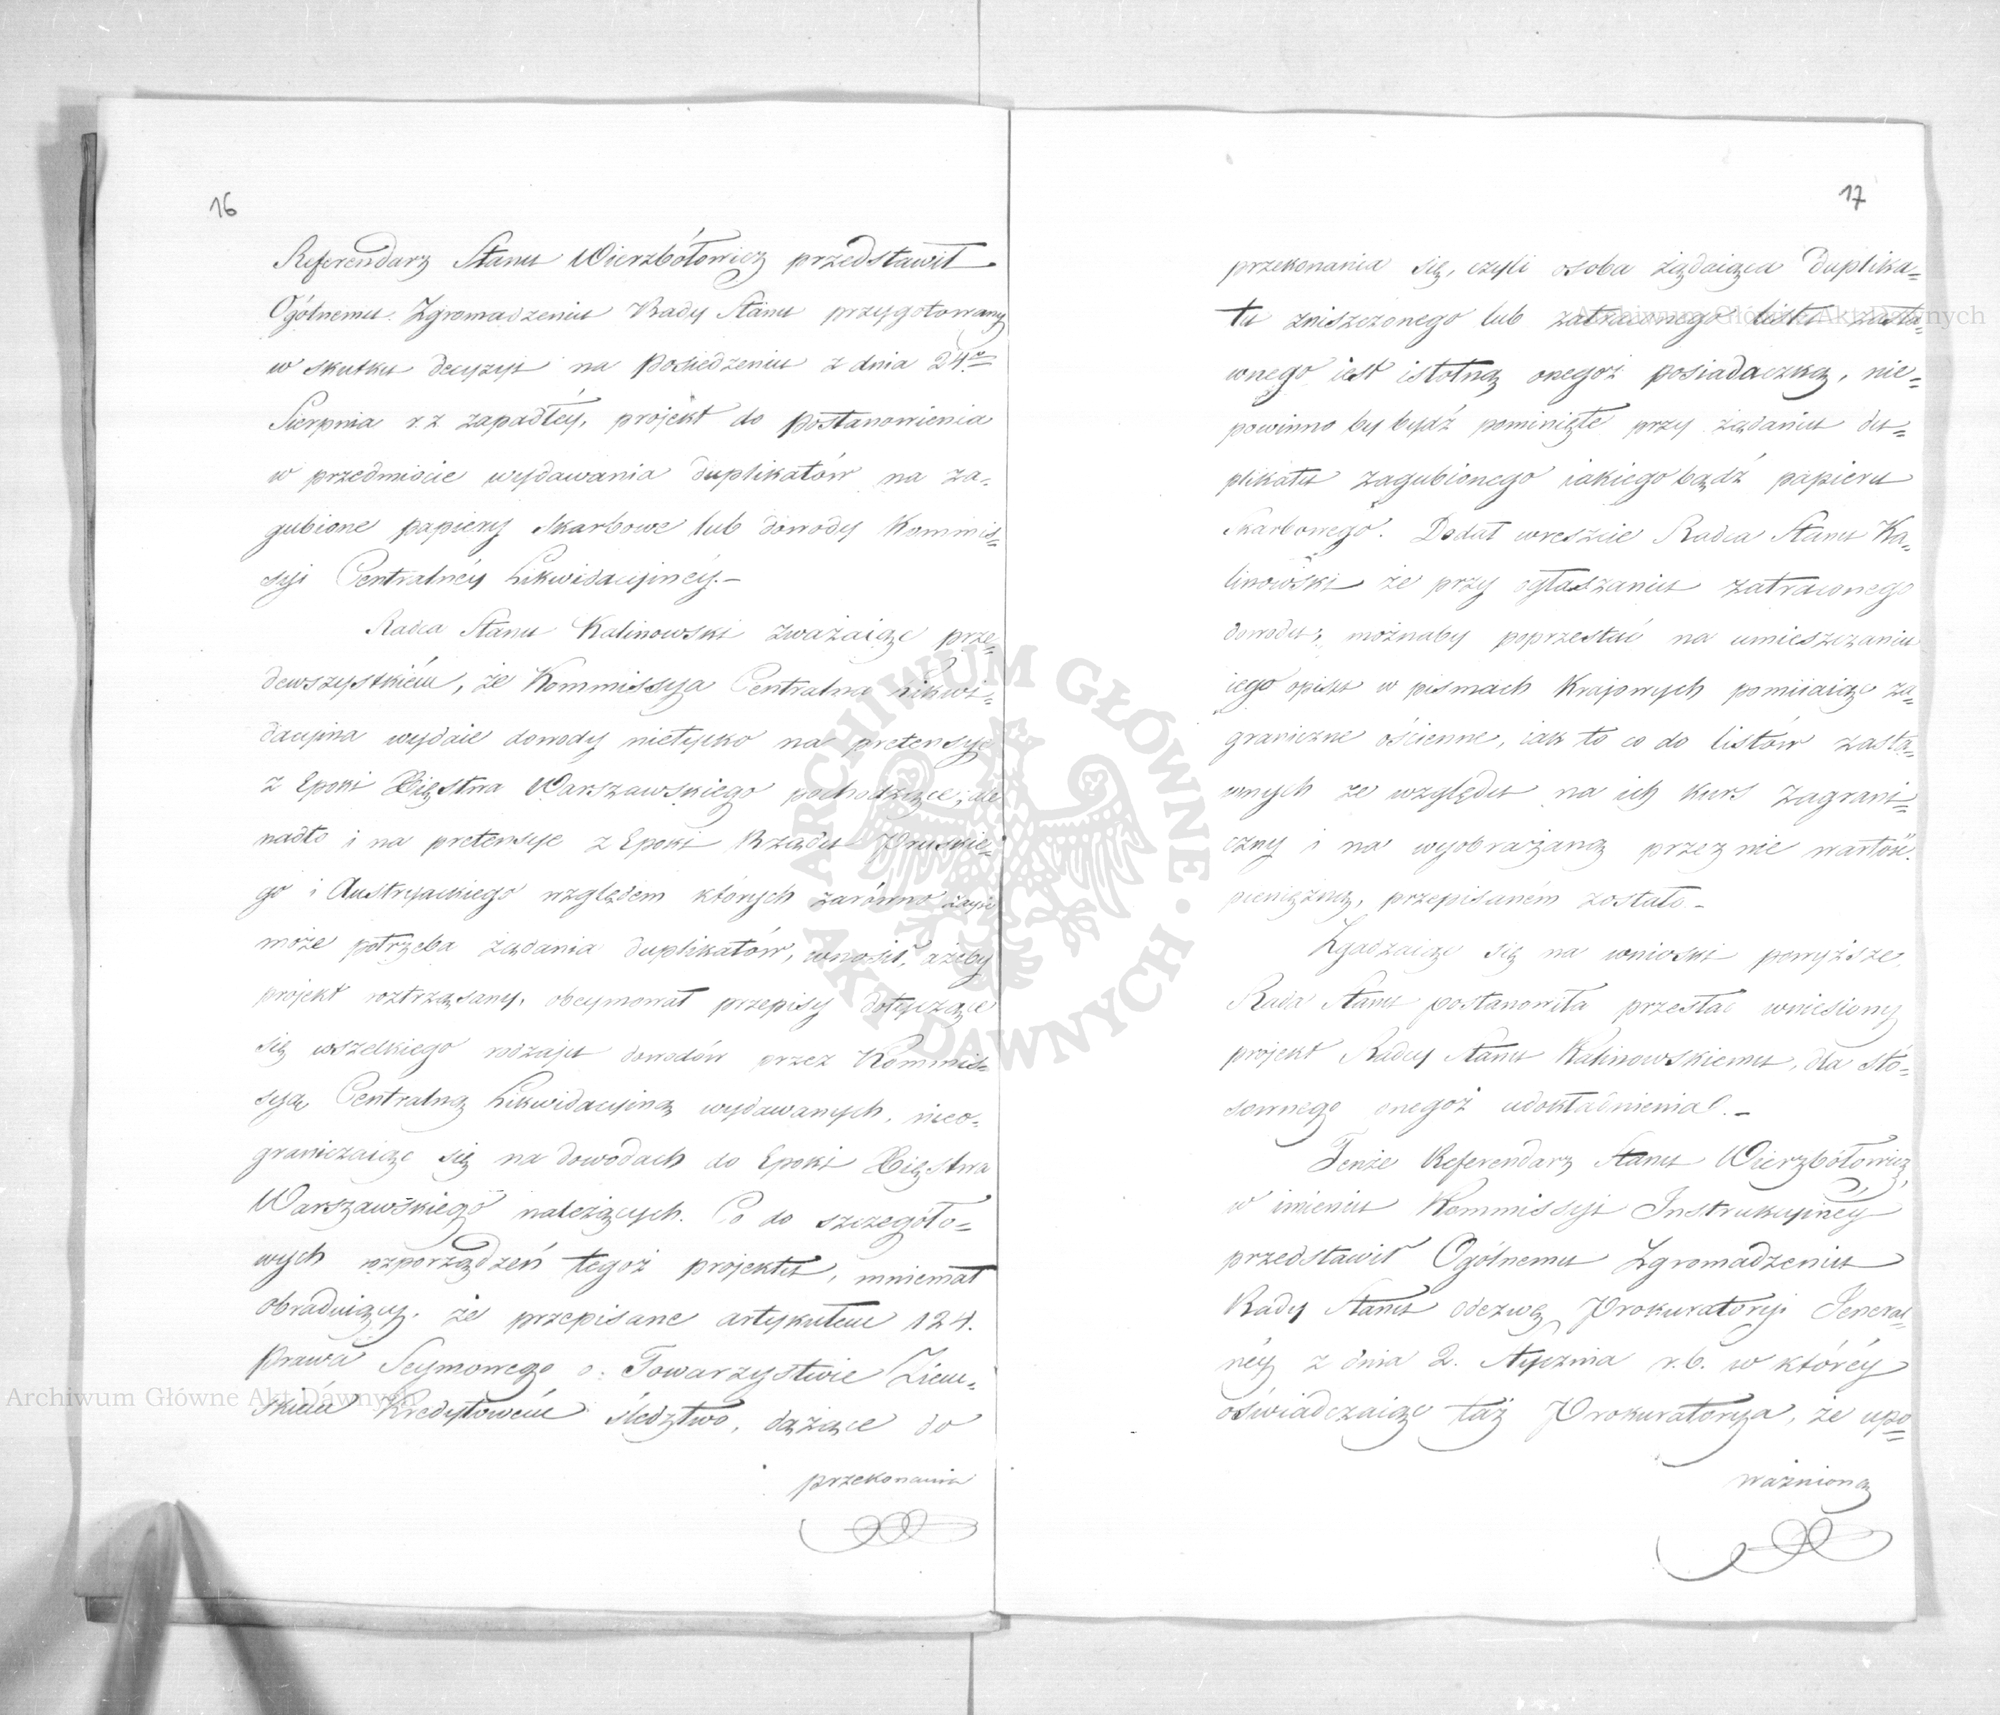 16
Referendarz Stanu Wierzbółowicz przedstawił
Ogólnemu Zgromadzeniu Rady Stanu przygotowany
w skutku decyzyi na Posiedzeniu z dnia 24º
Sierpnia r. z. zapadłéy, projekt do postanowienia
w przedmiocie wydawania duplikatów na za-
gubione papiery skarbowe lub dowody Kommis=
syi Centralnéy Likwidacyinéy.—
Radca Stanu Kalinowski zważaiąc prze=
dewszystkiém, że Kommissya Centralna Likwi=
dacyina wydaie dowody nietylko na pretensye
z Epoki Xięstwa Warszawskiego pochodzące, ale
nadto i na pretensye z Epoki Rządu Pruskie=
go i Austryackiego względem których zarówno zayść
może potrzeba żądania duplikatów, wnosił, ażeby
projekt roztrząsany, obeymował przepisy dotyczące
się wszelkiego rodzaju dowodów przez Kommis=
syą Centralną Likwidacyiną wydawanych, nieo-
graniczaiąc się na dowodach do Epoki Xięstwa
Warszawskiego należących. Co do szczegóło=
wych rozporządzeń tegoż projektu, mniemał
obraduiący, że przepisane artykułem 124.
Prawa Seymowego o Towarzystwie Ziem=
skiém Kredytowém śledztwo, dążące do
przekonania
17
przekonania się, czyli osoba żądaiąca duplika=
tu zniszczonego lub zatraconego listu zasta=
wnego iest istotną onegoż posiadaczką, nie=
powinno by bydź pominięte przy żądaniu du=
plikatu zagubionego iakiegobądź papieru
Skarbowego. Dodał wreszcie Radca Stanu Ka=
linowski że przy ogłaszaniu zatraconego
dowodu, możnaby poprzestać na umieszczaniu
iego opisu w pismach Krajowych pomiiaiąc za=
graniczne ościenne, iak to co do listów zasta=
wnych ze względu na ich kurs Zagrani=
czny i na wyobrażaną przez nie wartość
pieniężną, przepisaném zostało.—
Zgadzaiąc się na wnioski powyższe
Rada Stanu postanowiła przesłać wniesiony
projekt Radcy Stanu Kalinowskiemu, dla sto=
sownego onegoż udokładnienia.—
Tenże Referendarz Stanu Wierzbółowicz,
w imieniu Kommissyi Instrukcyinéy
przedstawił Ogólnemu Zgromadzeniu
Rady Stanu odezwę Prokuratoryi Jeneral=
néy z dnia 2. Stycznia r. b. w któréy
oświadczaiąc taż Prokuratorya, że upo=
ważnioną
ARCHIWUM GŁÓWNE AKT DAWNYCH
Archiwum Główne Akt Dawnych
Archiwum Główne Akt Dawnych